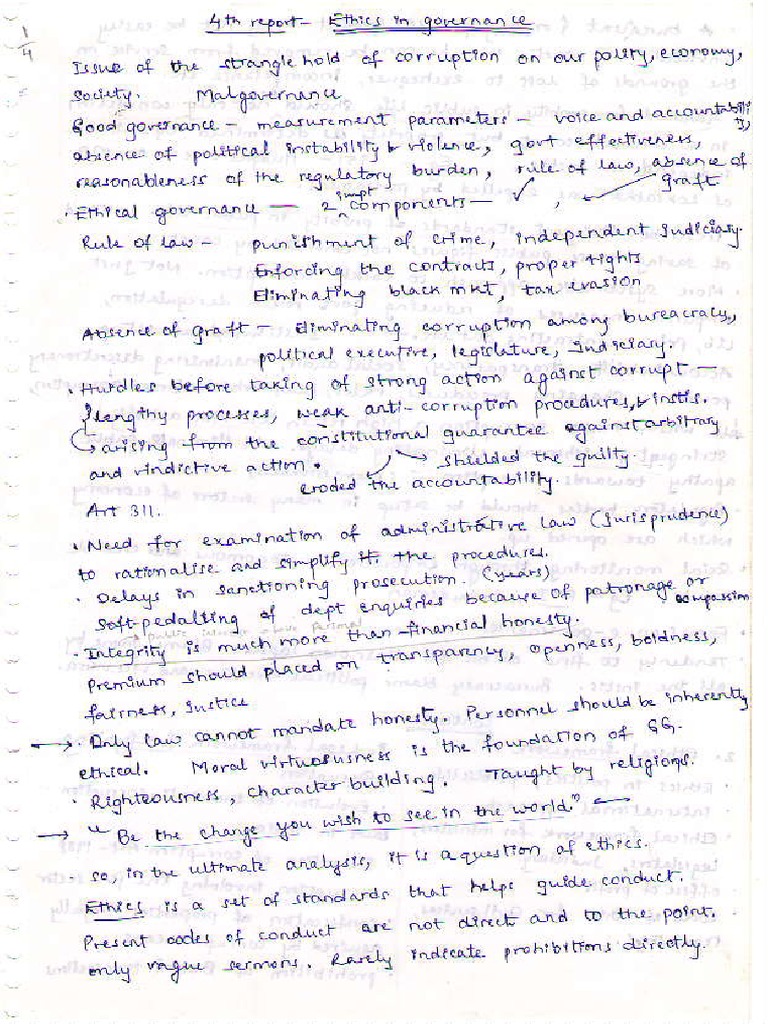 1/4
4th report - Ethics in governance
Issue of the strangle hold of corruption on our polity, economy,
society. Malgovernance
Good governance - measurement parameters - voice and accountability,
absence of political instability & violence, govt effectiveness,
reasonableness of the regulatory burden, rule of law, absence of
graft
· Ethical governance — 2 impt components - ✓ ,
Rule of law - punishment of crime, independent judiciary.
Enforcing the contracts, proper rights
Eliminating black mkt, tax evasion
Absence of graft - Eliminating corruption among bureaucracy,
political executive, legislature, judiciary.
· Hurdles before taking of strong action against corrupt -
lengthy processes, weak anti-corruption procedures, & instis.
arising from the constitutional guarantee against arbitrary
and vindictive action. → shielded the guilty.
eroded the accountability.
Art 311.
· Need for examination of administrative law (Jurisprudence)
to rationalise and simplify the procedures.
· Delays in sanctioning prosecution. (years)
Soft-pedalling of dept enquiries because of patronage or
compassion
public above personal
· Integrity is much more than financial honesty.
Premium should placed on transparency, openness, boldness,
fairness, justice
→ · Only law cannot mandate honesty. Personnel should be inherently
ethical. Moral virtuousness is the foundation of GG.
· Righteousness, character building. Taught by religions.
→ "Be the change you wish to see in the world." ←
· So, in the ultimate analysis, it is a question of ethics.
Ethics is a set of standards that helps guide conduct.
Present codes of conduct are not direct and to the point.
only vague sermons. Rarely indicate prohibitions directly.